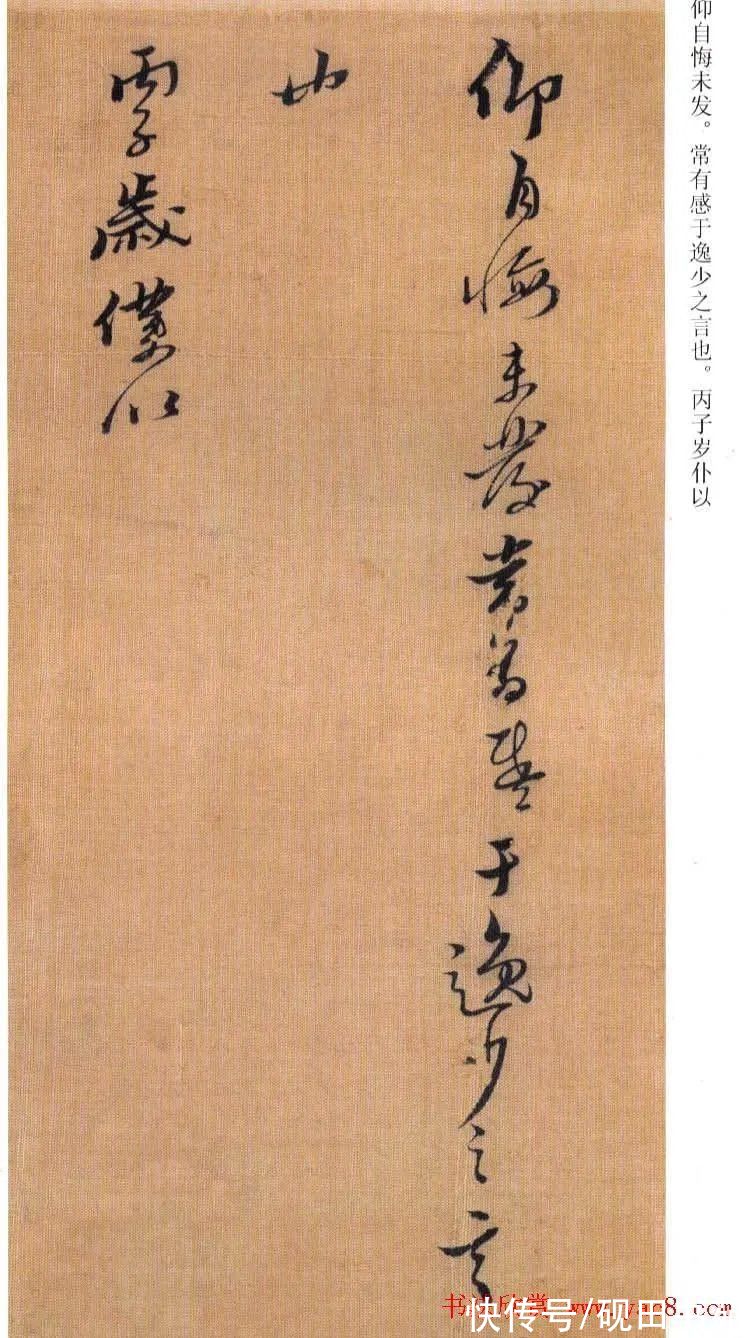 仰自悔未发。常有感于逸少之言也。丙子岁仆以
仰自悔未發常有感于逸少之言
也
丙子歲僕以
书法欣赏
快传号/砚田